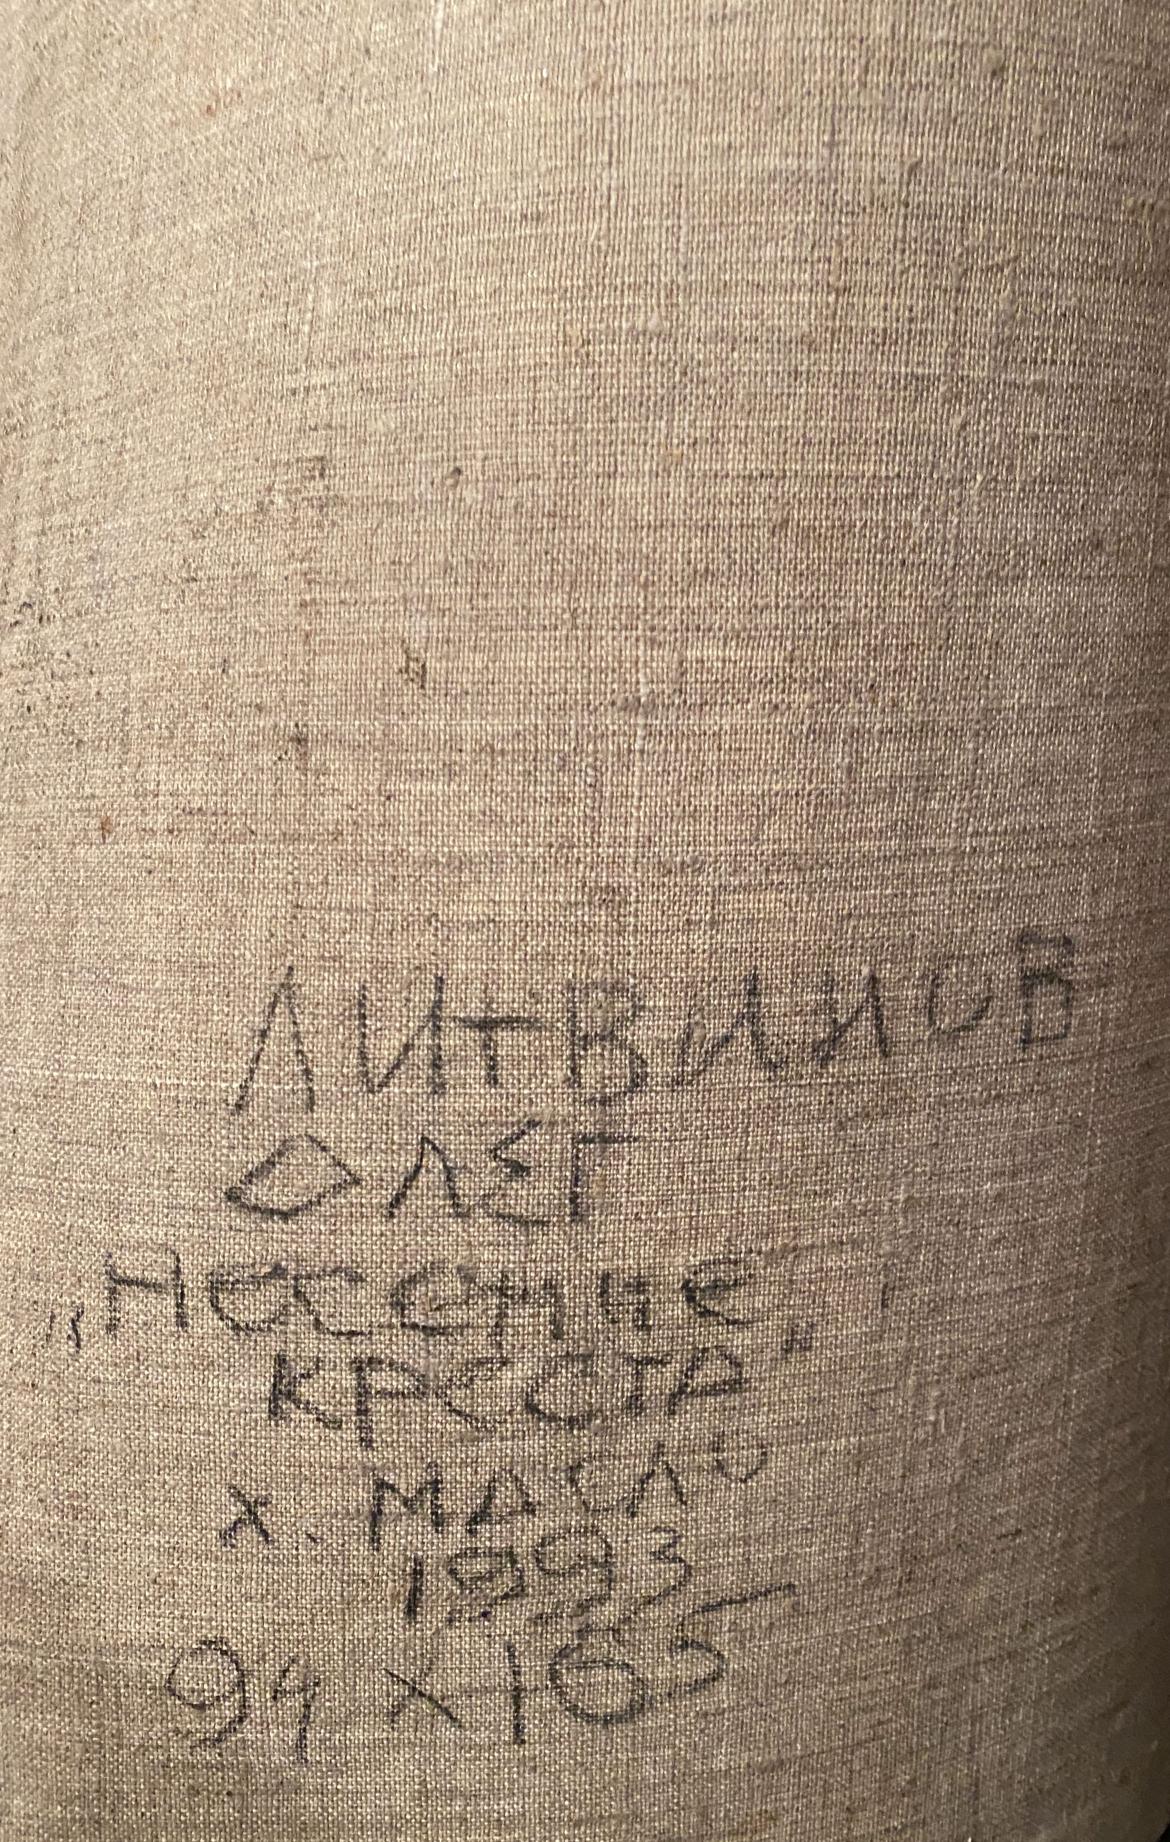 ЛИТВИНОВ
ОЛЕГ
„Несение
креста"
х. МАСЛО
1993
94 x 165